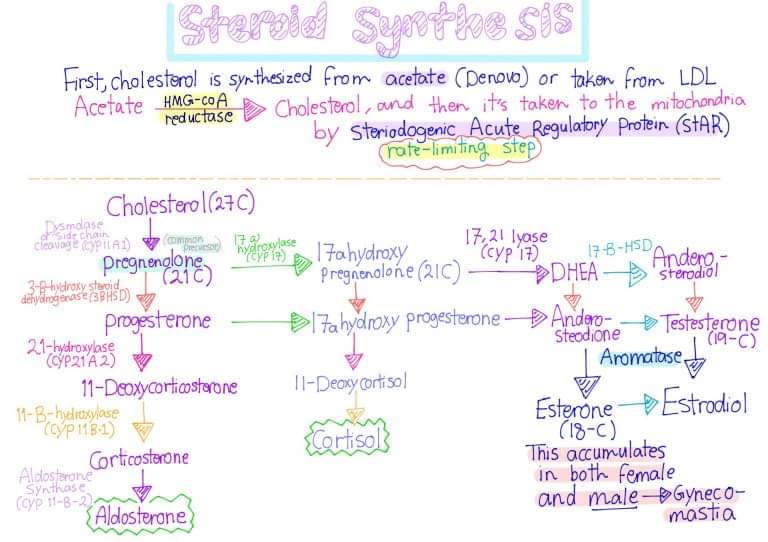 Steroid Synthesis
First, cholesterol is synthesized from acetate (Denovo) or taken from LDL
Acetate HMG-coA reductase Cholesterol, and then it's taken to the mitochondria
by Steriodogenic Acute Regulatory Protein (StAR)
rate-limiting step
Cholesterol (27C)
Dysmolase
or side chain
cleavage (CYP11A1)
(common
precursor)
pregnenolone
(21C)
17 α
hydroxylase
(CYP 17)
17αhydroxy
pregnenolone (21C)
17,21 lyase
(CYP 17)
DHEA
17-B-HSD
Andero-
steradiol
3-B-hydroxy steroid
dehydrogenase (3BHSD)
progesterone
17αhydroxy progesterone
Andero-
stedione
Testesterone
(19-C)
21-hydroxylase
(CYP21A2)
Aromatase
11-Deoxycorticosterone
11-Deoxycortisol
Esterone
(18-C)
Estradiol
11-B-hydroxylase
(CYP 11B-1)
Cortisol
Corticosterone
This accumulates
in both female
and male → Gyneco-
mastia
Aldosterone
Synthase
(CYP 11-B-2)
Aldosterone